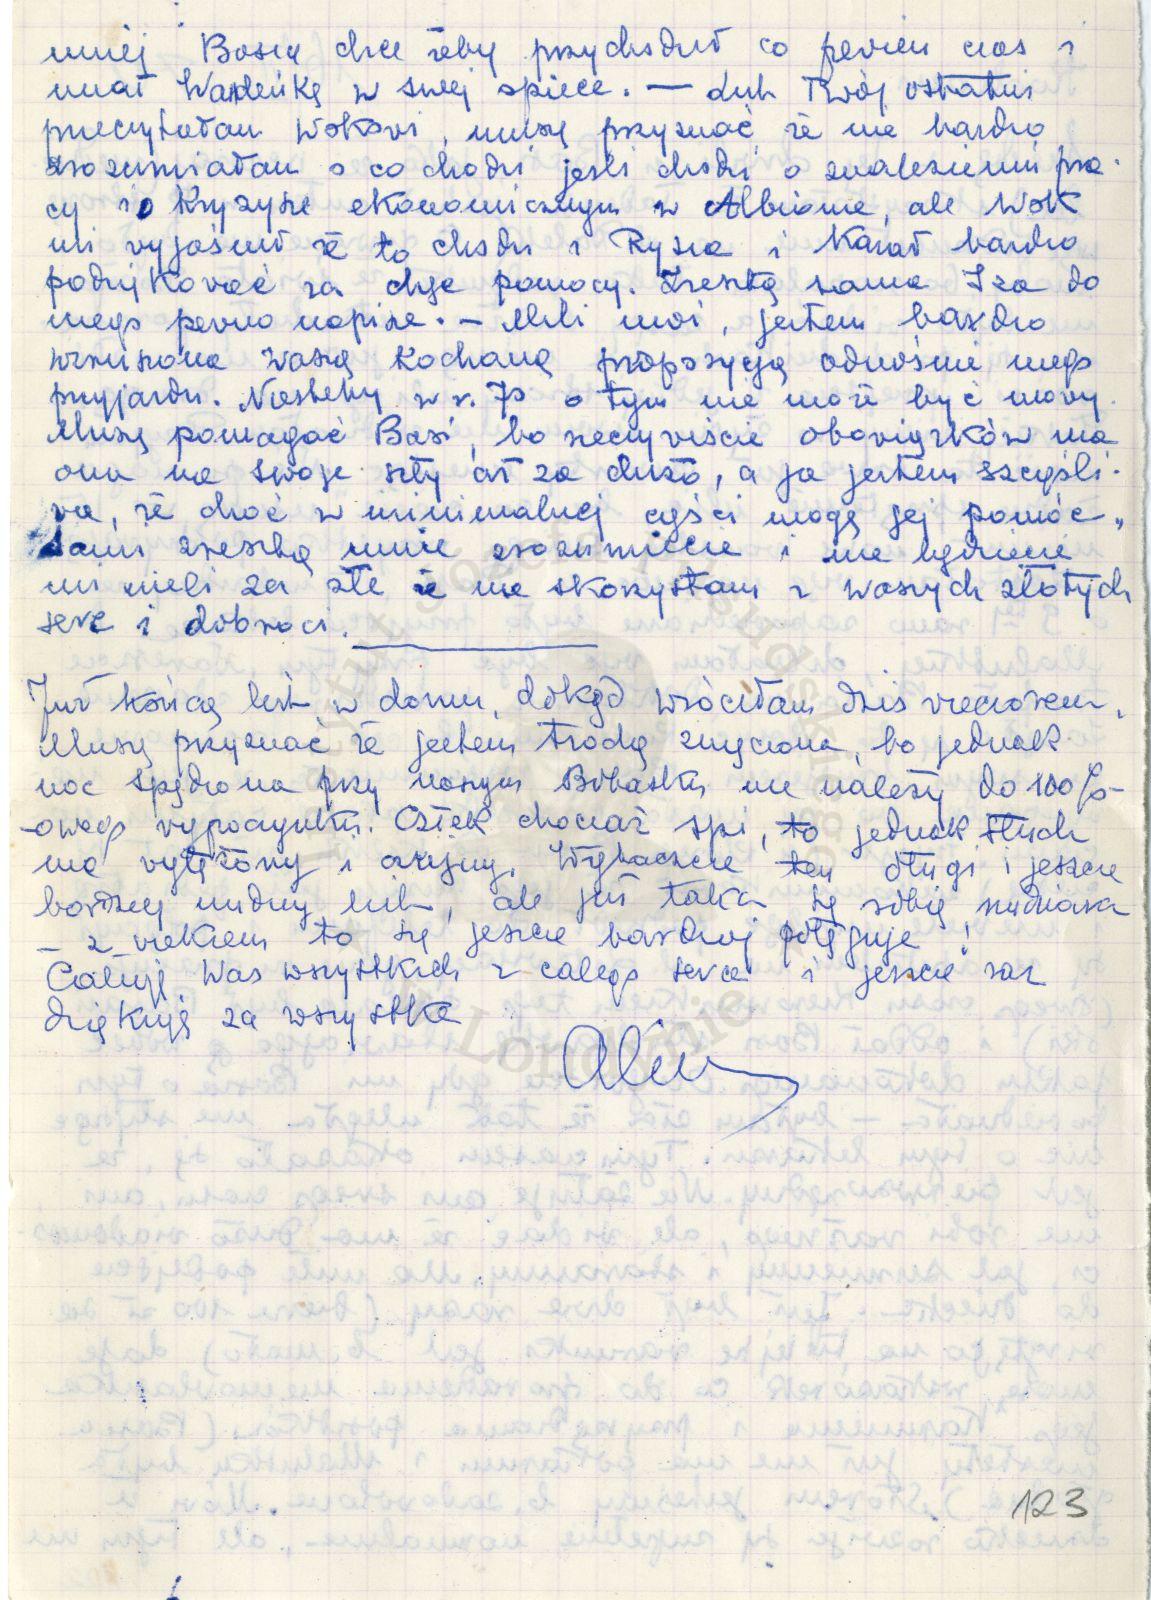 mniej Basia chce żeby przychodził co pewien czas i
miał Wandeńkę w swej opiece. — List Twój ostatni
przeczytałam Wokowi, muszę przyznać że nie bardzo
zrozumiałam o co chodzi jeśli chodzi o znalezieniu pra-
cy i o kryzysie ekonomicznym w Albionie, ale Wok
mi wyjaśnił że to chodzi i Rysia i kazał bardzo
podziękować za chęć pomocy. Zresztą sama Iza do
niego pewno napisze. — Mili moi, jestem bardzo
wzruszona Waszą kochaną propozycją odnośnie mego
przyjazdu. Niestety w r. 70 o tym nie może być mowy.
Muszę pomagać Basi, bo rzeczywiście obowiązków ma
ona na swoje siły aż za dużo, a ja jestem szczęśli-
wa, że choć w minimalnej części mogę jej pomóc.
Sami zresztą mnie zrozumiecie i nie będziecie
mi mieli za złe że nie skorzystam z Waszych złotych
serc i dobroci.
Już kończę list w domu, dokąd wróciłam dziś wieczorem.
Muszę przyznać że jestem trochę zmęczona, bo jednak
noc spędzona przy naszym Bobasku nie należy do 100%-
-owego wypoczynku. Człek chociaż śpi, to jednak słuch
ma wytężony i czujny. Wybaczcie ten długi i jeszcze
bardziej nudny list, ale już taka się robię nudziara
– z wiekiem to się jeszcze bardziej potęguje!
Całuję Was wszystkich z całego serca i jeszcze raz
dziękuję za wszystko
Alina
123
Instytut Józefa Piłsudskiego
w Londynie